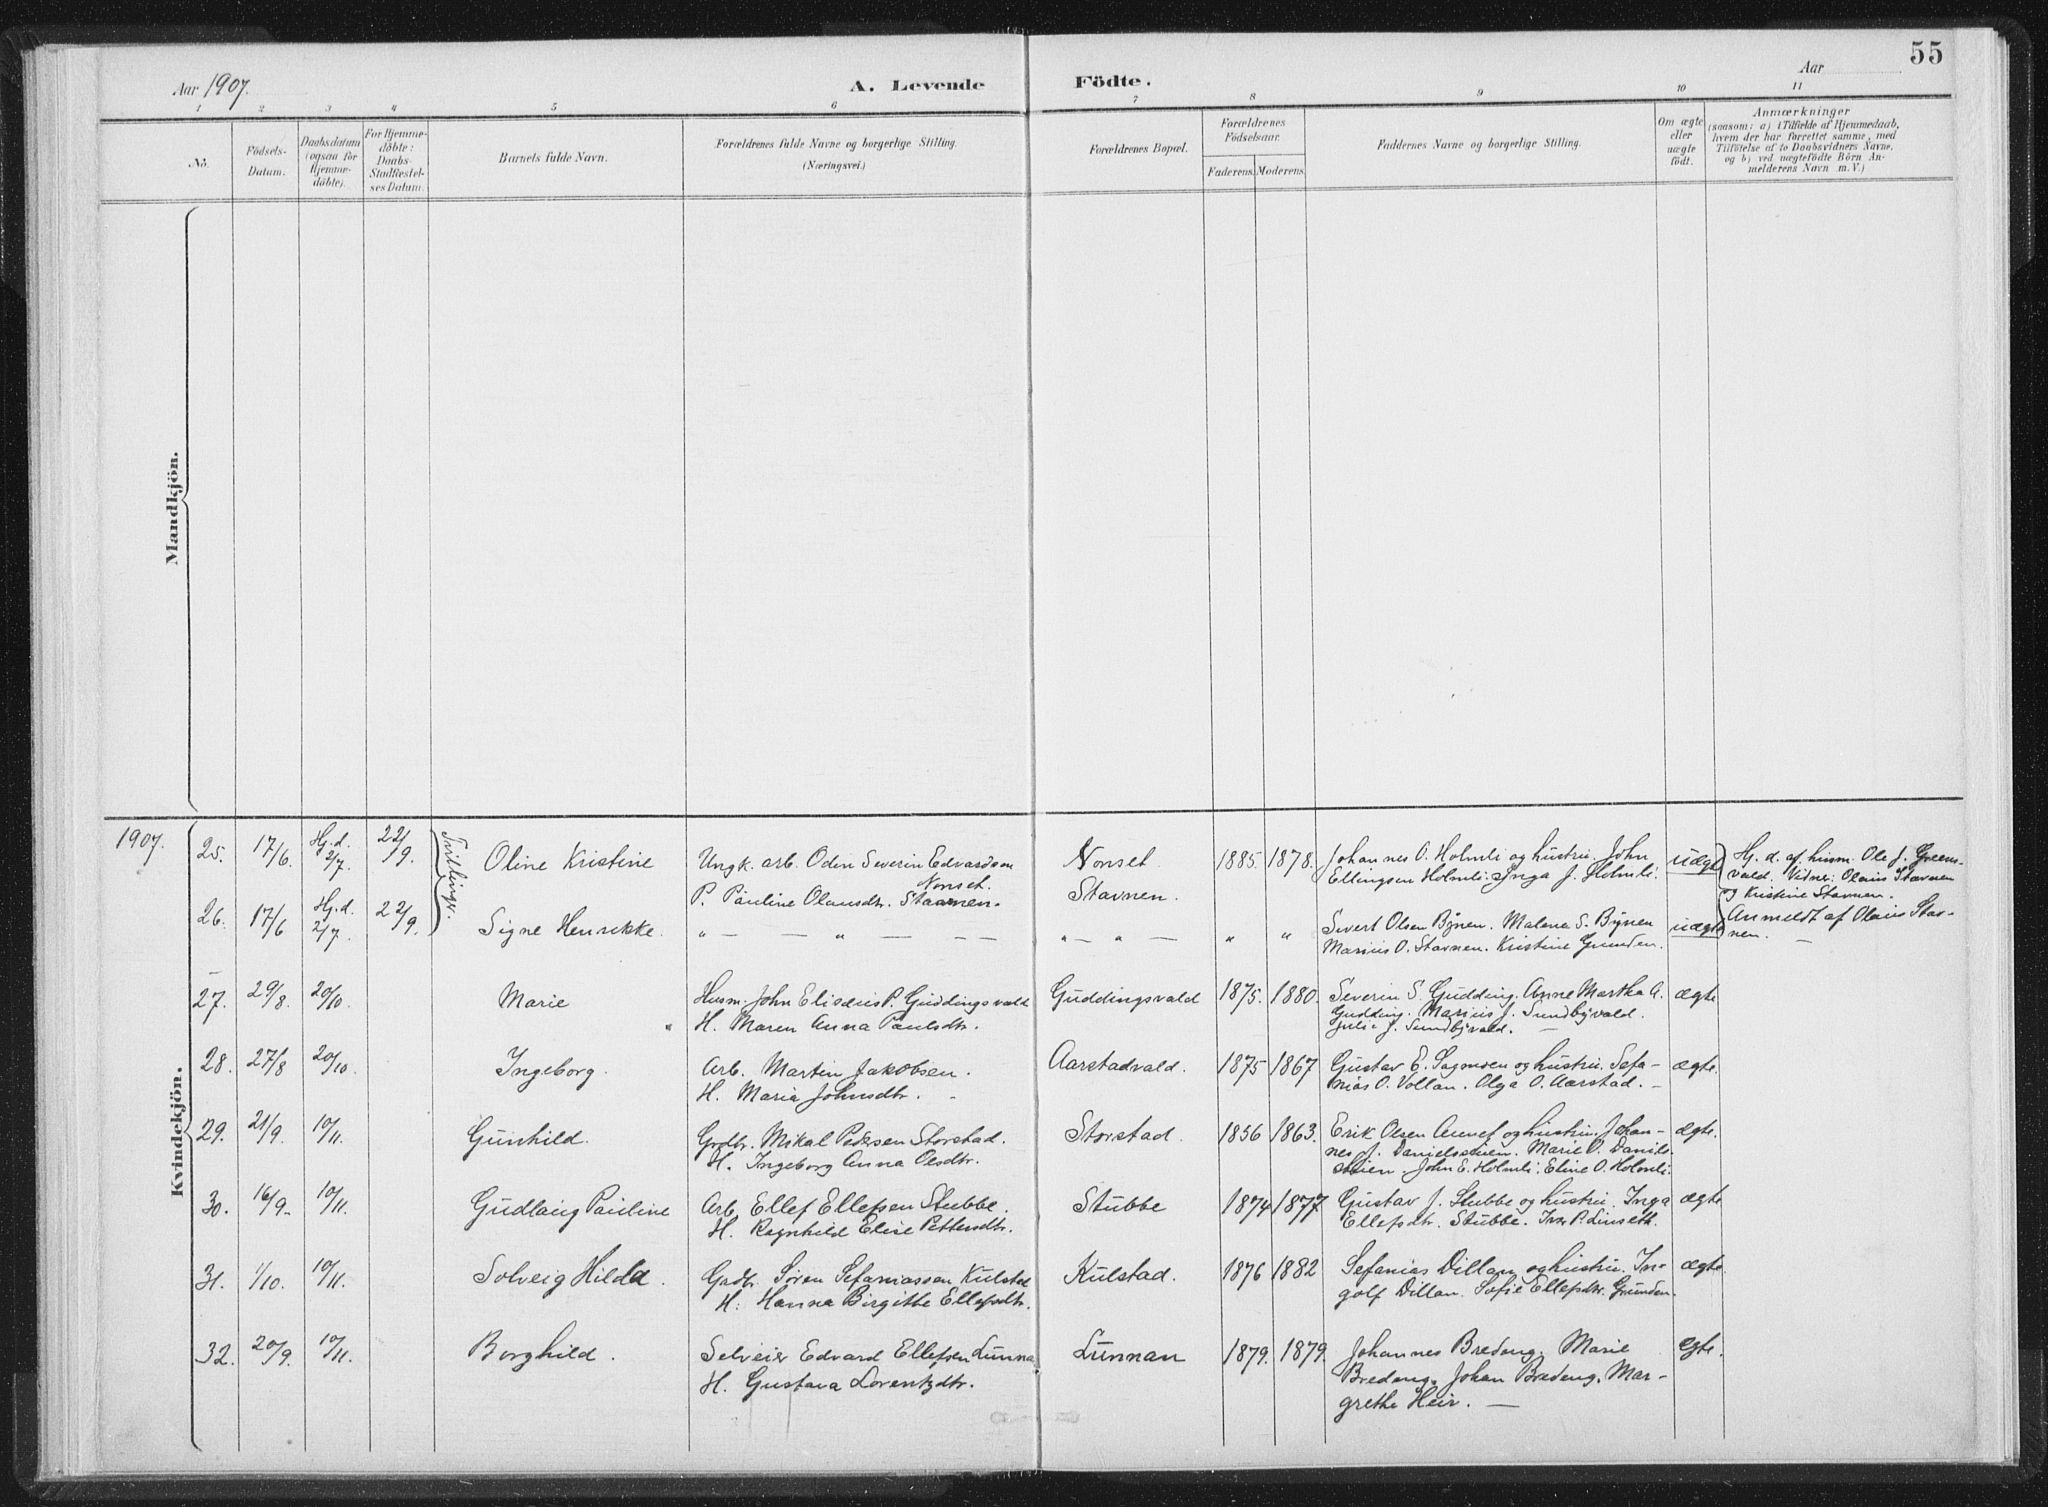 55
Aar 1907.
A. Levende Födte.
Aar
1 2 3 4 5 6 7 8 9 10 11
No.
Födsels-
Datum.
Daabsdatum
(ogsaa for
Hjemme-
döbte).
For Hjemme-
döbte:
Daabs-
Stadfæstel-
ses Datum.
Barnets fulde Navn.
Forældrenes fulde Navne og borgerlige Stilling.
(Næringsvei.)
Forældrenes Bopæl.
Forældrenes
Födselsaar.
Faderens. Moderens.
Faddernes Navne og borgerlige Stilling.
Om ægte
eller
uægte
födt.
Anmærkninger
(saasom: a) i Tilfælde af Hjemmedaab,
hvem der har forrettet samme, med
Tilföielse af to Daabsvidners Navne,
og b) ved uægtefödte Börn An-
melderens Navn m. V.)
Mandkjön.
Kvindekjön.
1907.
25. 17/6. Hj. d. 2/7. 22/9. Tvillinger. Oline Kristine
Ungk. arb. Oden Severin Edvardsen
Nonset.
P. Pauline Olausdtr. Stavnen.
Nonset
Stavnen.
1885. 1878.
Johannes O. Holmli og hustru. John
Ellingsen Holmli. Inga J. Holmli.
uægte
Hj. d. af husm. Ole J. Greens-
vald. Vidne: Olaus Stavnen
og Kristine Stavnen.
26. 17/6 Hj. d. 2/7. 22/9. Signe Henrikke.
" — — " — —
" — " —
" "
Sivert Olsen Bynen. Malena S. Bynen
Marius O. Stavnen. Kristine Grunden.
uægte
Anmeldt af Olaus Stav-
nen. —
27. 29/8. 20/10. Marie
Husm. John Elisæus P. Guddingsvald
H. Maren Anna Paulsdtr.
Guddingsvald
1875. 1880.
Severin S. Gudding. Anne Martha A.
Gudding. Marius J. Sundbyvald.
Julie J. Sundbyvald. —
ægte
28. 27/8 20/10. Ingeborg.
Arb. Martin Jakobsen.
H. Maria Johnsdtr.
Aarstadvald.
1875 1867
Gustav E. Sagmoen og hustru. Sefa-
nias O. Vollan. Olga O. Aarstad. —
ægte.
29. 21/9. 10/11. Gunhild.
Grdbr. Mikal Pedersen Storstad.
H. Ingeborg Anna Olsdtr.
Storstad.
1856 1863.
Erik Olsen og hustru. Johan-
nes J. Danielsen. Marie O. Daniels-
John E. Holmli. Eline O. Holmli.
ægte.
30. 16/9. 10/11. Gudlaug Pauline
Arb. Ellef Ellefsen Stubbe.
H. Ragnhild Elise Pettersdtr.
Stubbe
1874 1877
Gustav J. Stubbe og hustru. Inga
Ellefsdtr. Stubbe. Iver P. Linseth.
ægte
31. 1/10. 10/11. Solveig Hilda.
Grdbr. Søren Sefaniassen Kulstad
H. Hanna Birgithe Ellefsdtr.
Kulstad.
1876 1882
Sefanias Dillan og hustru. In-
golf Dillan. Sofie Ellefsdtr. Grunden.
ægte
32. 20/9. 10/11. Borghild.
Selveier Edvard Ellefsen Lunnan
H. Gustava Lorentzdtr.
Lunnan
1879. 1879.
Johannes Bredeng. Marie
Bredeng. Johan Bredeng. Mar-
grethe Heir. —
egte.